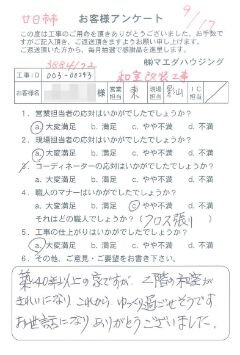 廿日市 お客様アンケート 9/17
この度は工事のご用命を頂きありがとうございました。お手数で
すがご記入頂き、ご返送頂きますようお願い申し上げます。
ご返送頂いた方から、毎月抽選で感謝品を進呈します。
㈱マエダハウジング
工事ID 003-00293 和室改装工事
お客様名 様 営業担当 現場担当 IC担当
1. 営業担当者の応対はいかがでしたでしょうか?
a.大変満足 b.満足 c.やや不満 d.不満
2. 現場担当者の応対はいかがでしたでしょうか?
a.大変満足 b.満足 c.やや不満 d.不満
3. コーディネーターの応対はいかがでしたでしょうか?
a.大変満足 b.満足 c.やや不満 d.不満
4. 職人のマナーはいかがでしたでしょうか?
a.大変満足 b.満足 c.やや不満 d.不満
それはどの職人でしょうか?(クロス張り)
5. 工事の仕上がりはいかがでしたでしょうか?
a.大変満足 b.満足 c.やや不満 d.不満
6. その他、ご意見・ご要望をお書き下さい。
築40年以上の家ですが、二階の和室が
きれいになり、これからゆっくり過ごせそうです
お世話になりありがとうございました。